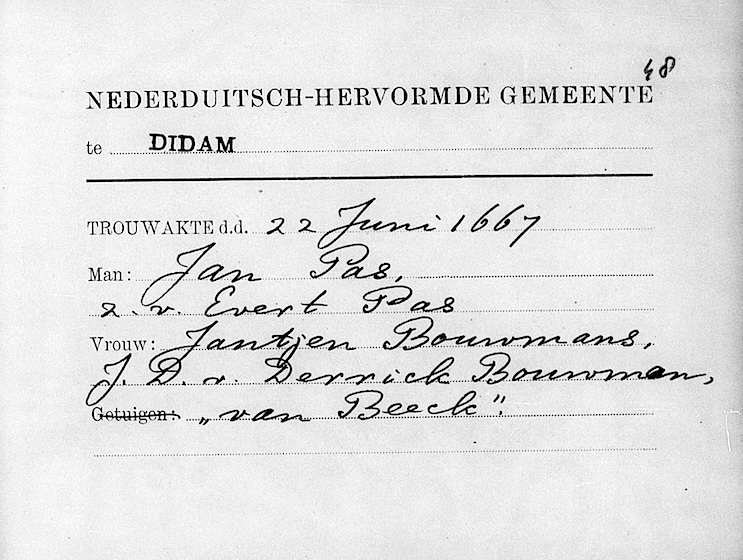 48
NEDERDUITSCH-HERVORMDE GEMEENTE
te DIDAM
TROUWAKTE d.d. 22 Juni 1667
Man: Jan Pas,
z. v. Evert Pas
Vrouw: Jantjen Bouwmans,
J. D. v. Derrick Bouwman,
Getuigen: „van Beeck".